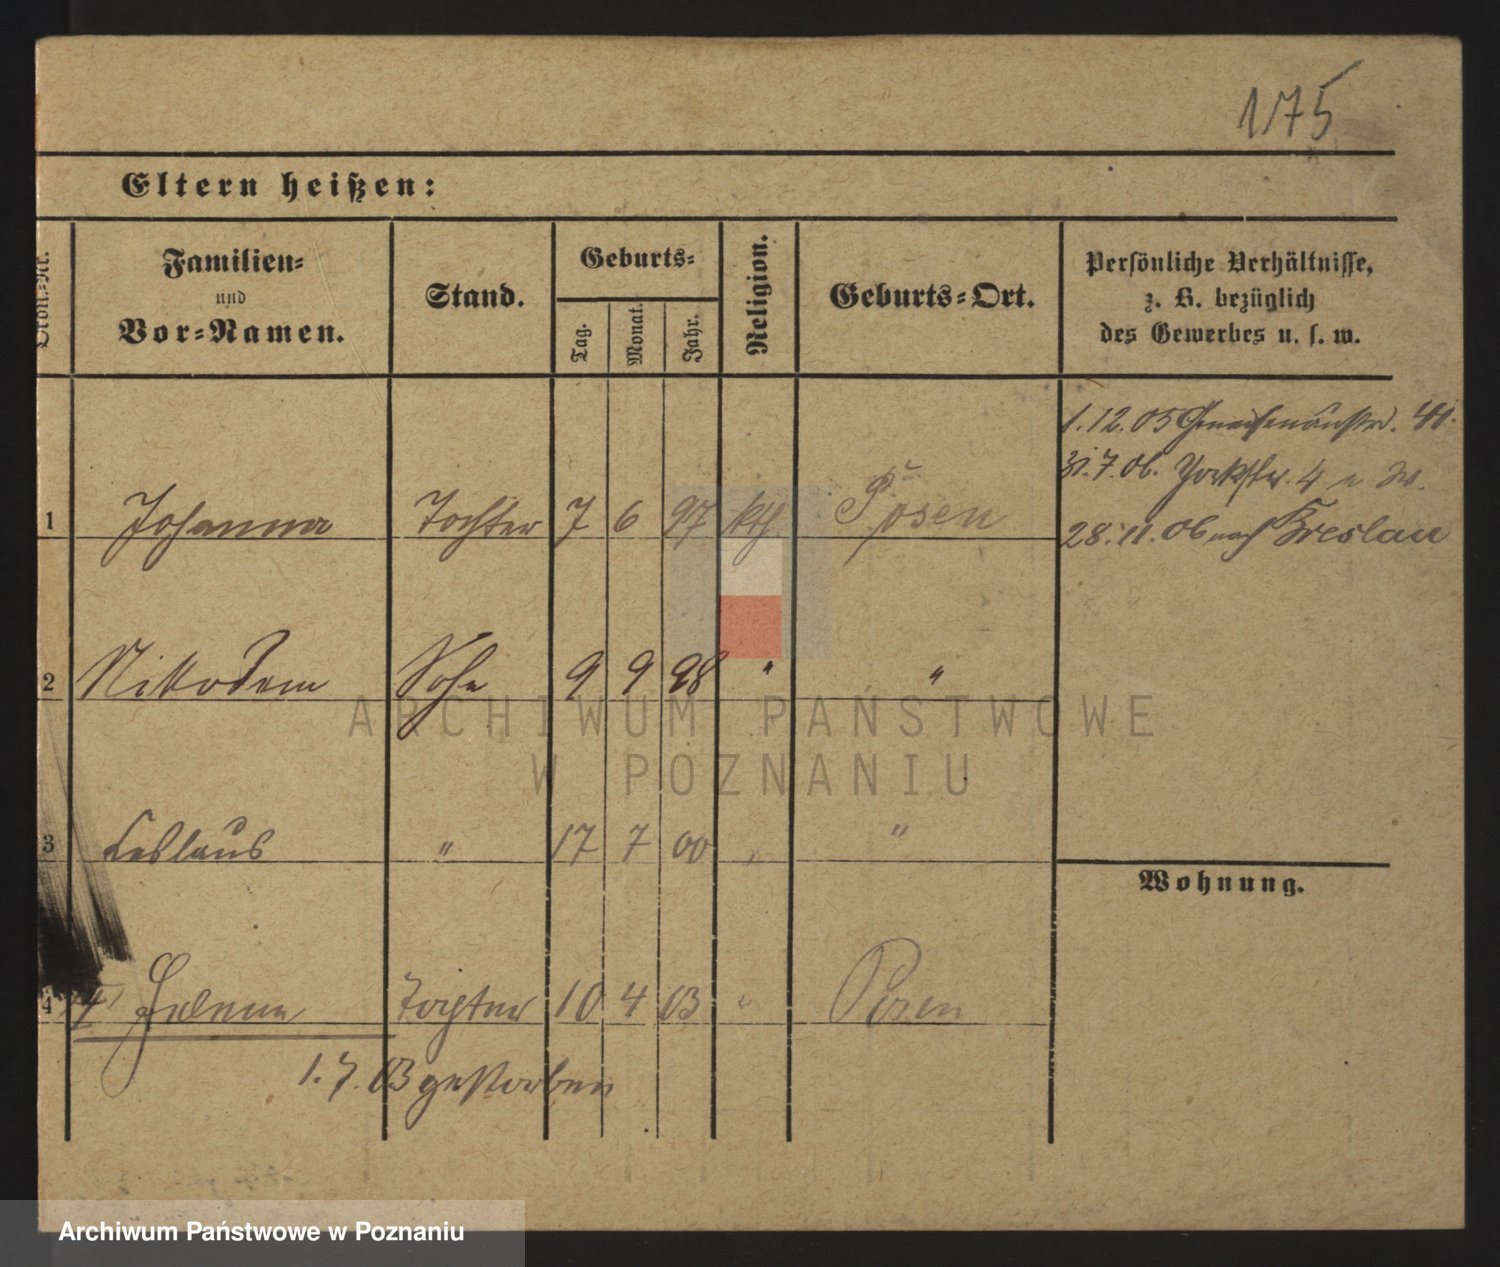 175
Eltern heißen:
Ordn.-Nr.
Familien-
und
Vor-Namen.
Stand.
Geburts-
Tag.
Monat.
Jahr.
Religion.
Geburts-Ort.
Persönliche Verhältnisse,
z. B. bezüglich
des Gewerbes u. s. w.
1.12.05 Gneisenaustr. 41.
31.7.06. Yorkstr. 4
28.11.06 nach Breslau
1 Johanna Tochter 7 6 97 kth. Posen
2 Nikodem Sohn 9 9 98 " "
3 Ceslaus " 17 7 00 " "
Wohnung.
4 Helene Tochter 10 4 03 " Posen
1.7.03 gestorben
ARCHIWUM PAŃSTWOWE
W POZNANIU
Archiwum Państwowe w Poznaniu